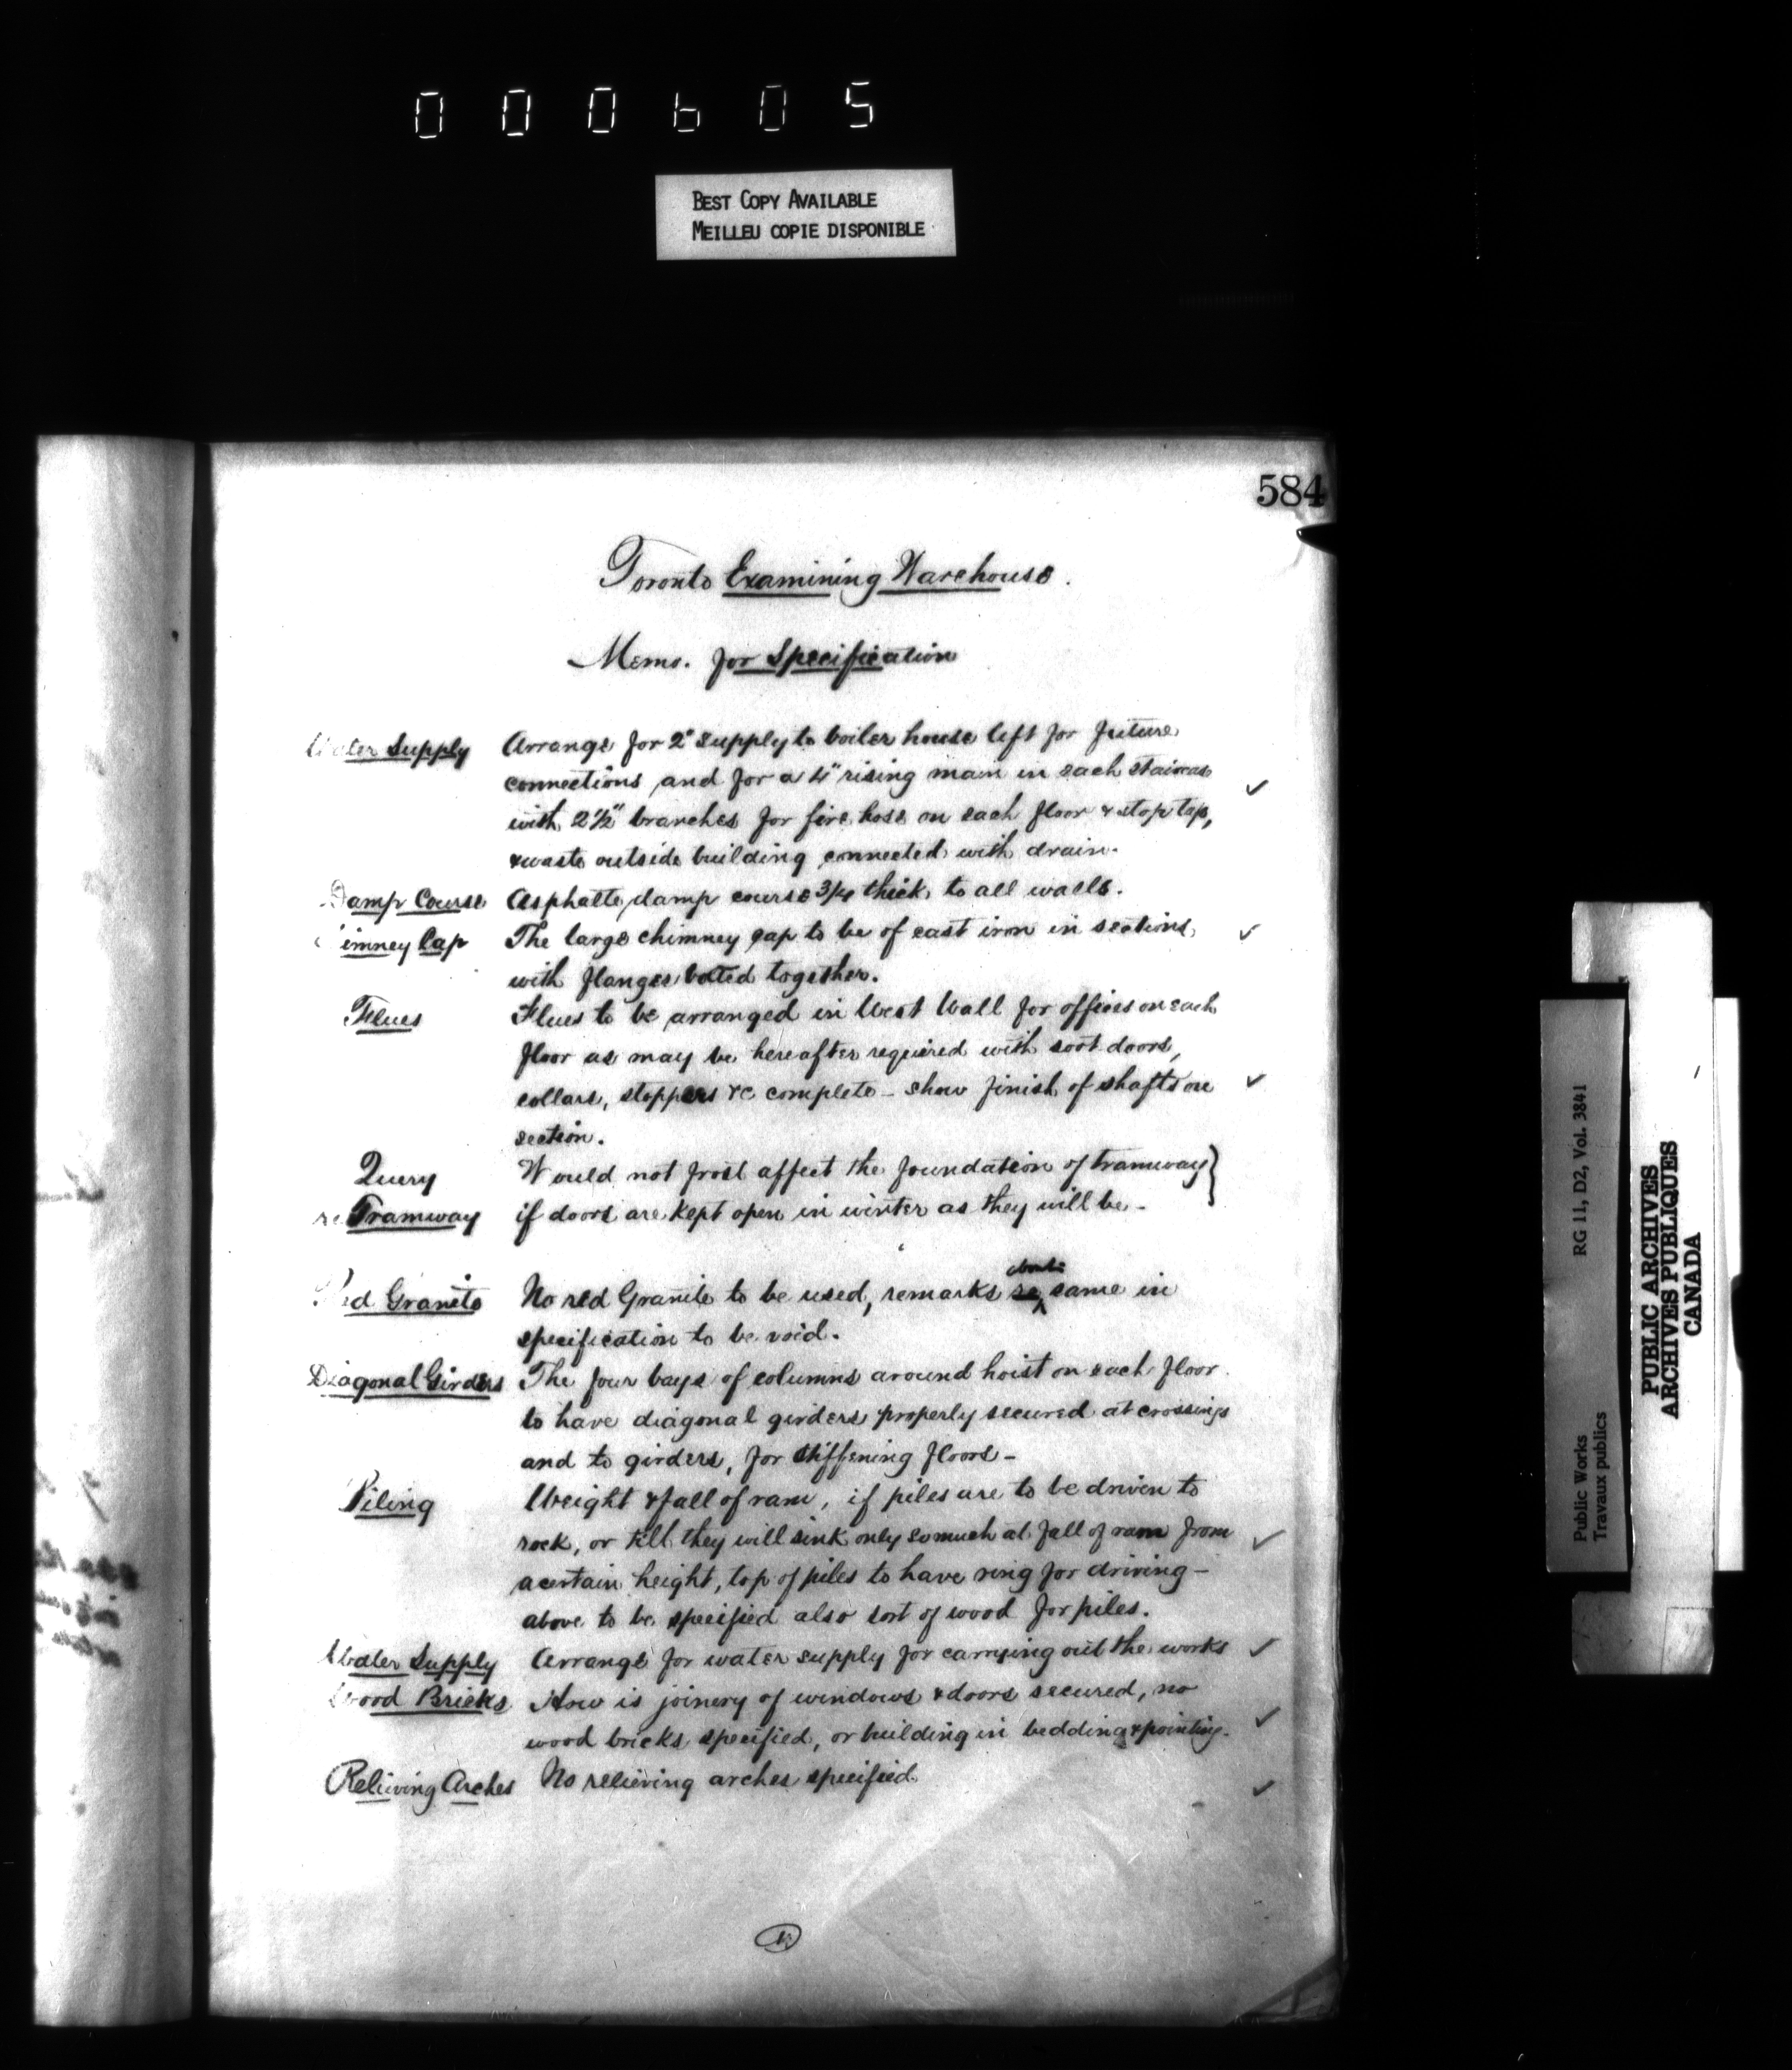 000605
BEST COPY AVAILABLE
MEILLEU COPIE DISPONIBLE
584
Toronto Examining Warehouse.
Memo. for Specification
Water Supply Arrange for 2" supply to boiler house left for future
connections and for a 4" rising main in each staircase
with 2½" branches for fire hose on each floor & stop tap,
& waste outside building connected with drain.
Damp Course Asphalte damp course 3/4 thick to all walls.
Chimney Cap The large chimney cap to be of cast iron in sections,
with flanges bolted together.
Flues Flues to be arranged in West Wall for offices on each
floor as may be hereafter required with soot doors,
collars, stoppers &c complete - show finish of shafts on
section.
Query Would not frost affect the foundation of tramway }
re Tramway if doors are kept open in winter as they will be -
Red Granite No red Granite to be used, remarks same in
specification to be void.
Diagonal Girders The four bays of columns around hoist on each floor
to have diagonal girders properly secured at crossings
and to girders, for stiffening floors -
Piling Weight & fall of ram, if piles are to be driven to
rock, or till they will sink only so much at fall of ram from
a certain height, top of piles to have ring for driving -
above to be specified also sort of wood for piles.
Water Supply Arrange for water supply for carrying out the works
Wood Bricks How is joinery of windows & doors secured, no
wood bricks specified, or building in bedding & pointing.
Relieving Arches No relieving arches specified.
Public Works RG 11, D2, Vol. 3841
Travaux publics
PUBLIC ARCHIVES
ARCHIVES PUBLIQUES
CANADA